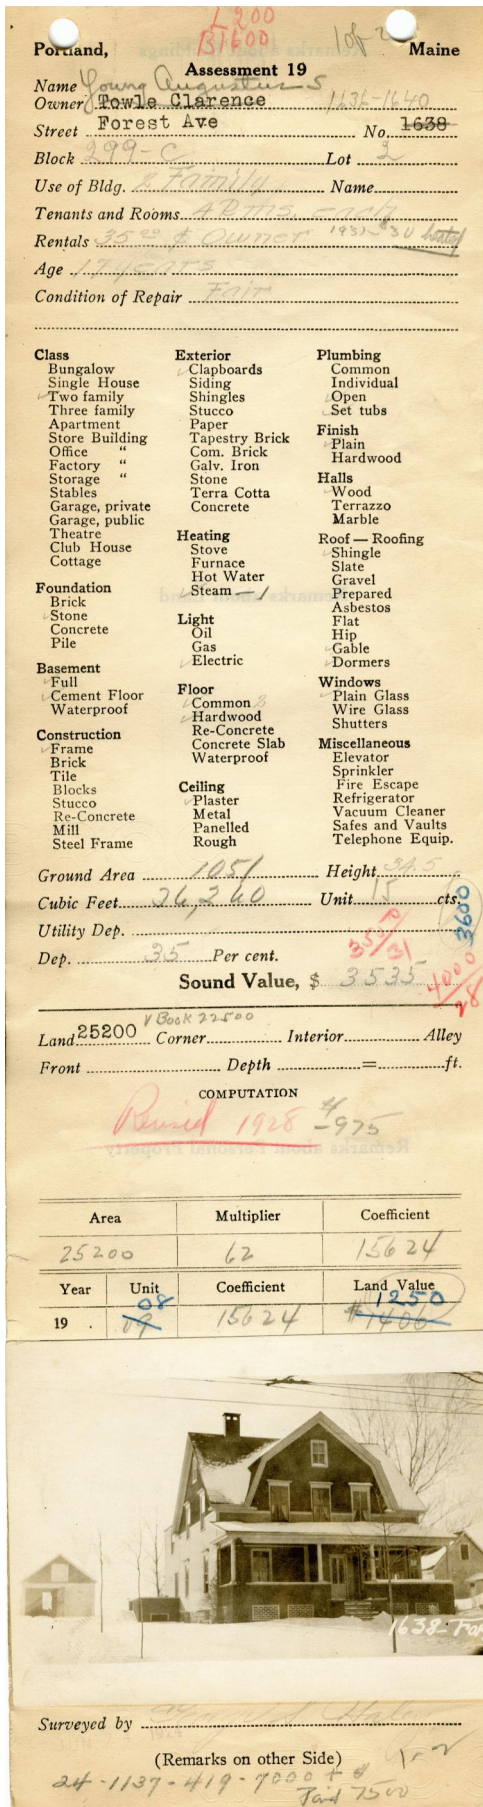 L 200
B 1600
1 of 2
Portland, Maine
Assessment 19
Name Young Augustus S
Owner Towle Clarence 1636-1640
Street Forest Ave No. 1638
Block 299-C Lot 2
Use of Bldg. 2 Family Name
Tenants and Rooms 4 Rms. each
Rentals 35 00 & Owner 1931- heated
Age 17 years
Condition of Repair Fair
Class
Bungalow
Single House
✓Two family
Three family
Apartment
Store Building
Office "
Factory "
Storage "
Stables
Garage, private
Garage, public
Theatre
Club House
Cottage
Foundation
Brick
✓Stone
Concrete
Pile
Basement
✓Full
✓Cement Floor
Waterproof
Construction
✓Frame
Brick
Tile
Blocks
Stucco
Re-Concrete
Mill
Steel Frame
Exterior
✓Clapboards
Siding
Shingles
Stucco
Paper
Tapestry Brick
Com. Brick
Galv. Iron
Stone
Terra Cotta
Concrete
Heating
Stove
Furnace
Hot Water
✓Steam - 1
Light
Oil
Gas
✓Electric
Floor
✓Common 2
✓Hardwood
Re-Concrete
Concrete Slab
Waterproof
Ceiling
✓Plaster
Metal
Panelled
Rough
Plumbing
Common
Individual
✓Open
✓Set tubs
Finish
✓Plain
Hardwood
Halls
✓Wood
Terrazzo
Marble
Roof — Roofing
✓Shingle
Slate
Gravel
Prepared
Asbestos
Flat
Hip
✓Gable
✓Dormers
Windows
✓Plain Glass
Wire Glass
Shutters
Miscellaneous
Elevator
Sprinkler
Fire Escape
Refrigerator
Vacuum Cleaner
Safes and Vaults
Telephone Equip.
Ground Area 1051 Height 34.5
Cubic Feet 36,260 Unit 15 cts.
3600
Utility Dep.
Dep. 35 Per cent.
4000/28
Sound Value, $ 3535
✓ Book 22500
Land 25200 Corner Interior Alley
Front Depth = ft.
COMPUTATION
Revised 1928 # -975
Area Multiplier Coefficient
25200 62 15624
Year Unit Coefficient Land Value
08 1250
19 . 09 15624 #1406
1638-For
Surveyed by
(Remarks on other Side)
24-1137-419-7000 +
Paid 7500